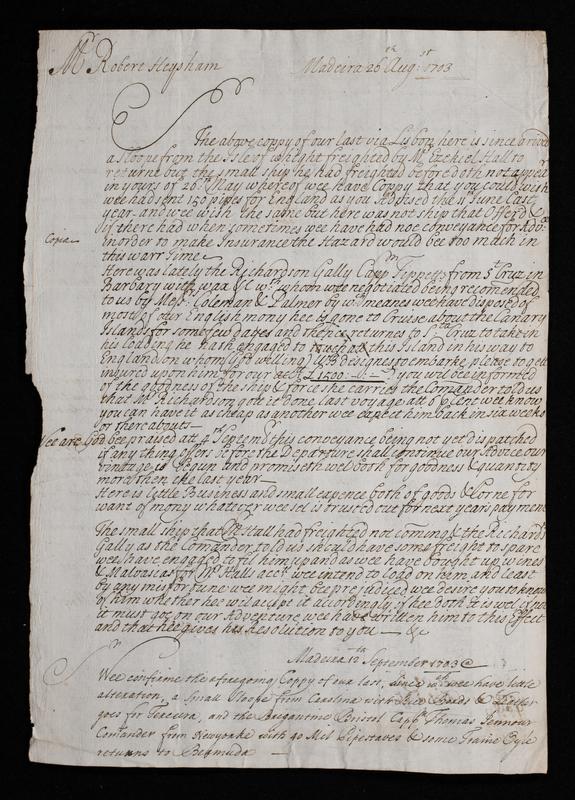 Mr Robert Heysham Madeira 26th Augst 1703
The above coppy of our last via Lisbon here is since arived
a Sloope from the Isle of Whight freighed by Mr Ezekiel Hall to
returne but the small ship he had freighted before doth not appear
in yours of 26: May whereof wee have Coppy that you could wish
wee had sent 150 pipes for England as you Advised the 1st June Last
year and wee wish the same but here was not ship that Offerd &
if there had when sometimes wee have had noe conveyance for Advi
in order to make Insurance the Hazard would bee too much in
Copia
this warr Time
Here was lately the Richardson Gally Capn Tippets from St Cruz in
Barbary with wax & whom wee negotiated being recomended
to us by Messrs Coleman & Palmer by wch meanes wee have disposed of
most of our English mony hee is gone to Cruise about the Canary
Islands for some few dayes and thence returnes to Sta Cruz to take in
his loading he hath engaged to touch att this Island in his way to
England on whom God willing designs to embarke please to gett
insured upon him for our acct £1500 you will bee informed
of the goodness of the ship & force she carries the Comander told us
that Mr Richardson gott it done last voyage att 6 Cent wee know
you can have it as cheap as another wee expect him back in six weeks
or thereabouts
Wee are God bee praised at 4th Septemr this conveyance being not yet dispatched
if any thing offers before the Departure shall continue our Advice our
vintage is begun and promiseth wel both for goodness & quantity
more then the last year
Here is Little Business and small expence both of goods & Corne for
want of mony whatever wee sel is trusted out for next years payment
The small ship that Mr Hall had freighted not coming & the Richards
Gally as the Comander told us should have some freight to spare
wee have engaged to fil him up and as wee have bought up wines
& Malvasias for Mr Halls acct wee entend to Load on him and Least
by any misfortune wee might bee prejudiced wee desire you to know
of him whether hee wil accept it accordingly if hee doth it is wel
it must goe on our Adventure wee have written him to this Effect
and that hee gives his Resolution to you &c
Madeira 12th September 1703
Wee confirme the afregoing Coppy of our last, since wch wee have little
alteration, a small Sloope from Carolina with &
goes for Tercera, and the Bregantine Bristol Capt Thomas
Comander from Newyorke with 40 Mel Pipestaves & some Traine Oyle
returns to Bermuda